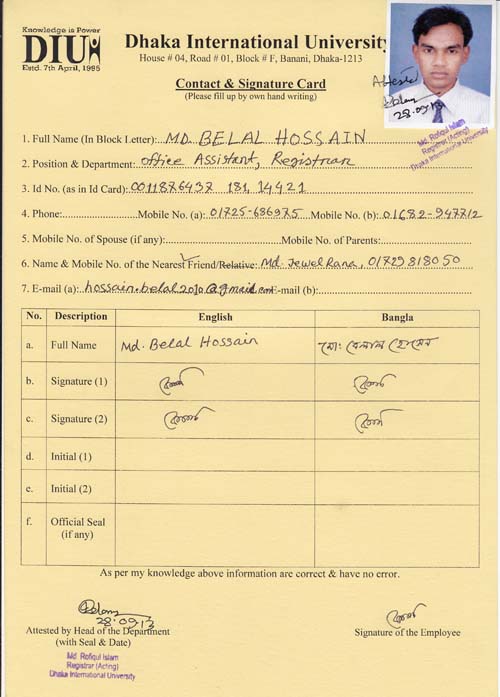 Knowledge is Power
DIU
Estd. 7th April, 1995
Dhaka International University
House # 04, Road # 01, Block # F, Banani, Dhaka-1213
Contact & Signature Card
(Please fill up by own hand writing)
Attested
28.09.13
Md. Rofiqul Islam
Registrar (Acting)
Dhaka International University
1. Full Name (In Block Letter): MD. BELAL HOSSAIN
2. Position & Department: office Assistant, Registrar
3. Id No. (as in Id Card): 0011876437 181, 14421
4. Phone: Mobile No. (a): 01725-686975 Mobile No. (b): 01682-947712
5. Mobile No. of Spouse (if any): Mobile No. of Parents:
6. Name & Mobile No. of the Nearest Friend/Relative: Md. Jewel Rana, 01729818050
7. E-mail (a): hossain.belal2010@gmail.com E-mail (b):
No. Description English Bangla
a. Full Name Md. Belal Hossain মো: বেলাল হোসেন
b. Signature (1)
c. Signature (2)
d. Initial (1)
e. Initial (2)
f. Official Seal
(if any)
As per my knowledge above information are correct & have no error.
28.09.13
Attested by Head of the Department
(with Seal & Date)
Signature of the Employee
Md. Rofiqul Islam
Registrar (Acting)
Dhaka International University